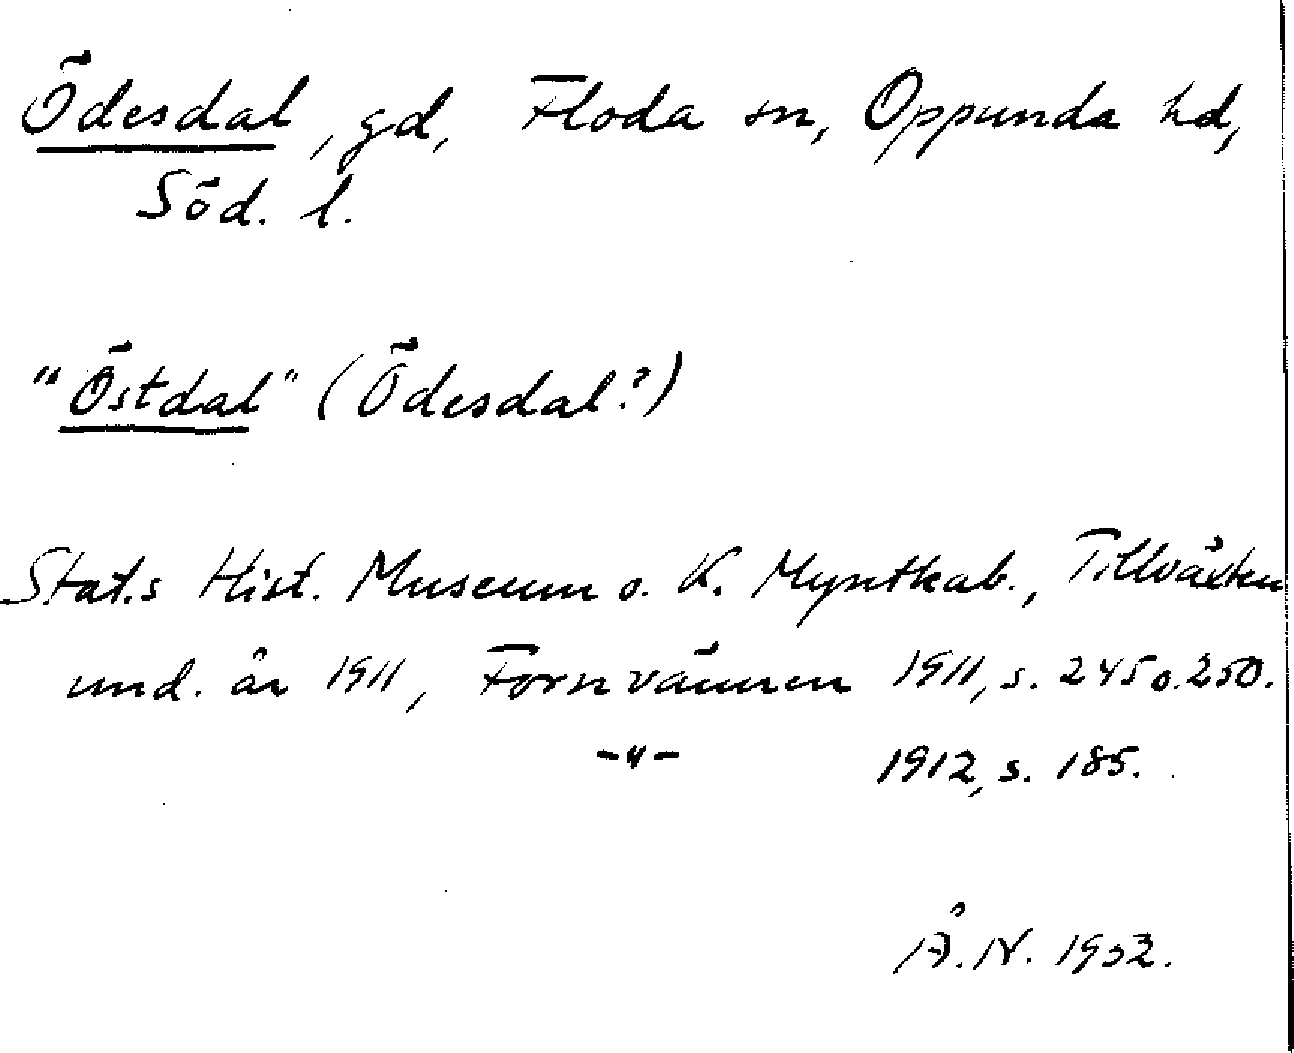 Ödesdal, gd, Floda sn, Oppunda hd,
Söd. l.
"Östdal" (Ödesdal?)
Stat.s Hist. Museum o. K. Myntkab., Tillväxten
und. år 1911, Fornvännen 1911, s. 245 o. 250.
-"- 1912, s. 185.
Å. N. 1932.